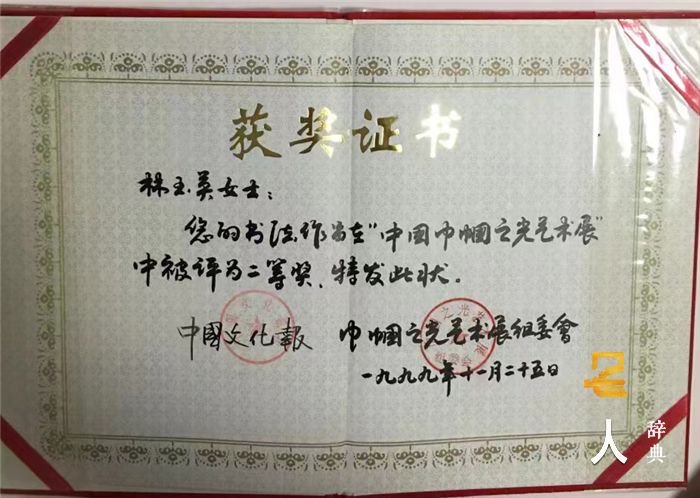 获奖证书
林玉英女士：
您的书法作品在“中国巾帼之光艺术展”
中被评为二等奖，特发此状。
中國文化報 巾帼之光艺术展组委會
一九九九年十一月二十五日
名人
辞典